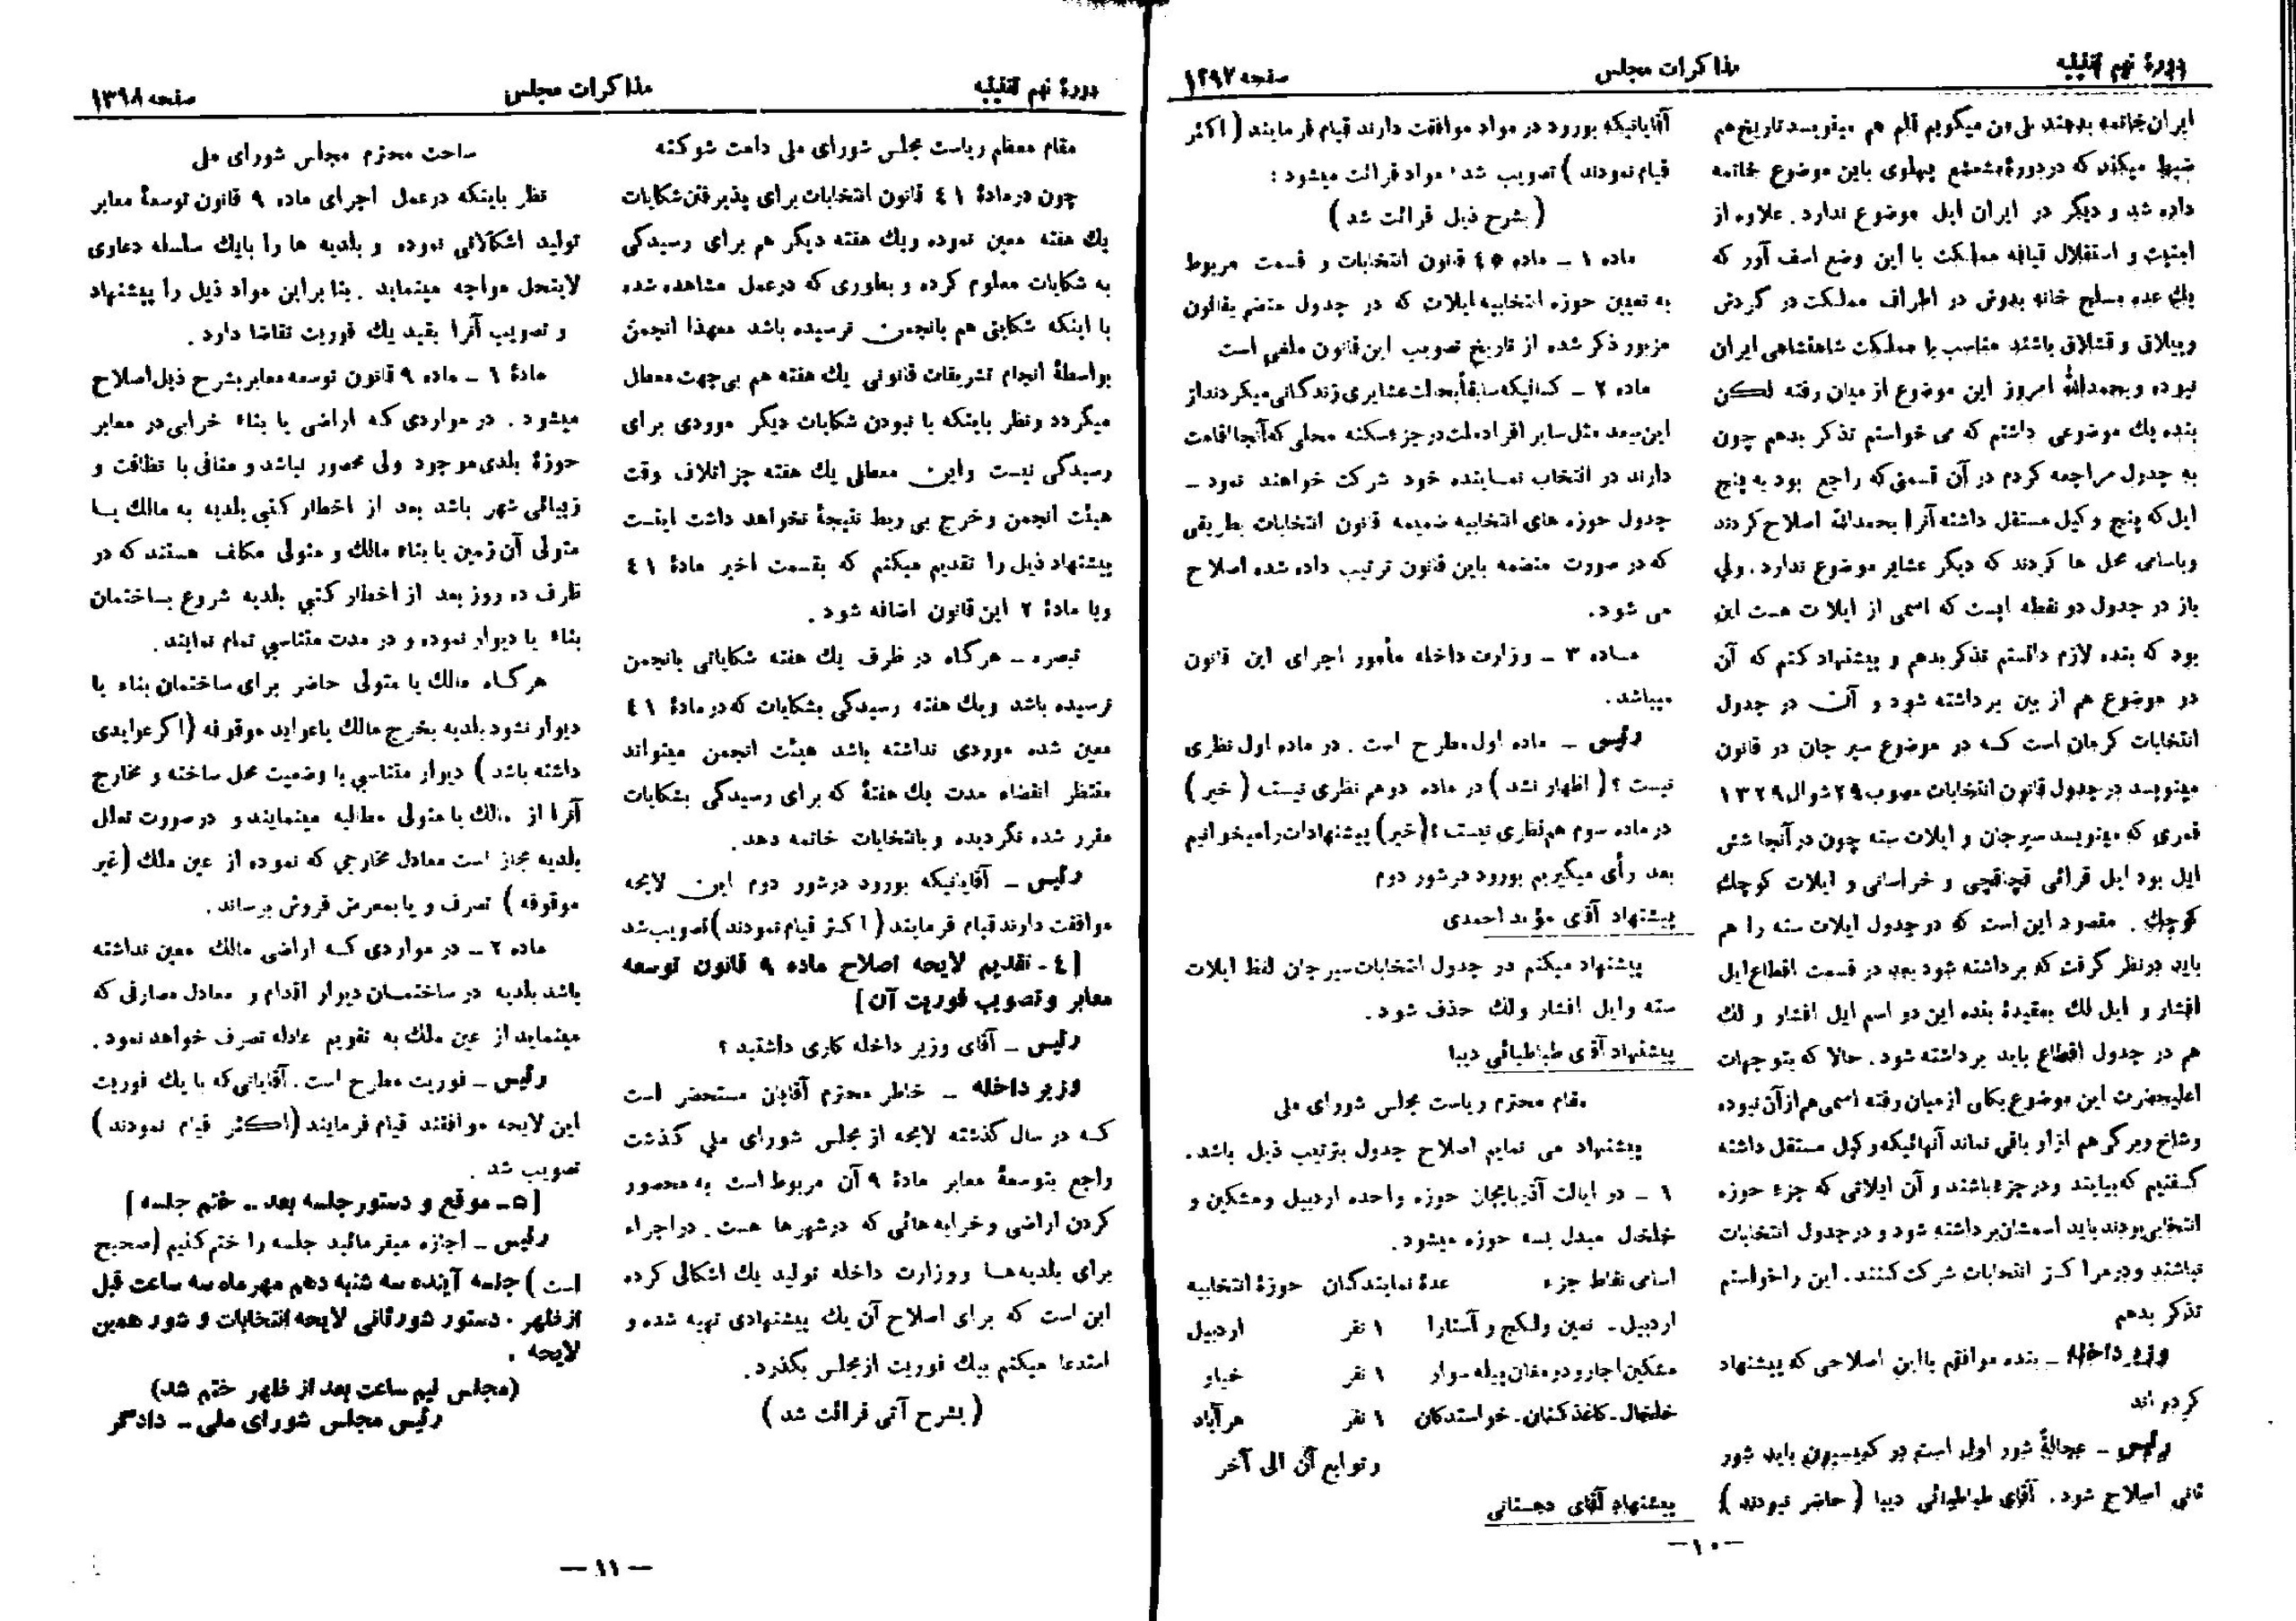 دورهٔ نهم تقنینیه
مذاکرات مجلس
صفحه ۱۳۹۷
ایران خاتمه بدهند ملی من میگویم قلم هم مینویسد تاریخ هم
ضبط میکند که در دورهٔ مشعشع پهلوی باین موضوع خاتمه
داده شد و دیگر در ایران ایل موضوع ندارد. علاوه از
ابنیت و استقلال قیافه مملکت با این وضع اسف آور که
یك عده مسلح خانه بدوش در اطراف مملکت در گردش
وییلاق و قشلاق باشند مناسب با مملکت شاهنشاهی ایران
نبوده و بحمدالله امروز این موضوع از میان رفته لکن
بنده یك موضوعی داشتم که می خواستم تذکر بدهم چون
به جدول مراجعه کردم در آن قسمتی که راجع بود به پنج
ایل که پنج وکیل مستقل داشته آنرا بحمدالله اصلاح کردند
وباسامی محل ها کردند که دیگر عشایر موضوع ندارد. ولی
باز در جدول دو نقطه ایست که اسمی از ایلات هست این
بود که بنده لازم دانستم تذکر بدهم و پیشنهاد کنم که آن
دو موضوع هم از بین برداشته شود و آن در جدول
انتخابات کرمان است که در موضوع سیرجان در قانون
مینویسد در جدول قانون انتخابات مصوب ۲۹ شوال ۱۳۲۹
قمری که مینویسد سیرجان و ایلات سته چون در آنجا شش
ایل بود ایل قرائی قچاقچی و خراسانی و ایلات کوچك
کوچك. مقصود این است که در جدول ایلات سته را هم
باید در نظر گرفت که برداشته شود بعد در قسمت اقطاع ایل
افشار و ایل لك بعقیدهٔ بنده این دو اسم ایل افشار و لك
هم در جدول اقطاع باید برداشته شود. حالا که بتوجهات
اعلیحضرت این موضوع بکلی از میان رفته اسمی هم از آن نبوده
وشاخ وبرگ هم از او باقی نماند آنهائیکه وکیل مستقل داشته
گفتیم که بیایند ودر جزء باشند و آن ایلاتی که جزء حوزه
انتخابی بودند باید اسمشان برداشته شود و در جدول انتخابات
نباشند ودر مراکز انتخابات شرکت کنند. این را خواستم
تذکر بدهم
وزیر داخله ـ بنده موافقم با این اصلاحی که پیشنهاد
کرده اند
رئیس ـ عجالةً شور اول است در کمیسیون باید شور
ثانی اصلاح شود. آقای طباطبائی دیبا (حاضر نبودند)
آقایانیکه بورود در مواد موافقت دارند قیام فرمایند (اکثر
قیام نمودند) تصویب شد، مواد قرائت میشود:
(بشرح ذیل قرائت شد)
ماده ۱ ـ ماده ٤٥ قانون انتخابات و قسمت مربوط
به تعیین حوزه انتخابیه ایلات که در جدول منضم بقانون
مزبور ذکر شده از تاریخ تصویب این قانون ملغی است
ماده ۲ ـ کسانیکه سابقاً بحالت عشایری زندگانی میکردند از
این ببعد مثل سایر افراد ملت در جزء سکنه محلی که آنجا اقامت
دارند در انتخاب نماینده خود شرکت خواهند نمود ـ
جدول حوزه های انتخابیه ضمیمه قانون انتخابات بطریقی
که در صورت منضمه باین قانون ترتیب داده شده اصلاح
می شود.
ماده ۳ ـ وزارت داخله مأمور اجرای این قانون
میباشد.
رئیس ـ ماده اول مطرح است. در ماده اول نظری
نیست؟ (اظهار نشد) در ماده دوهم نظری نیست (خیر)
در ماده سوم هم نظری نیست؟ (خیر) پیشنهادات را میخوانیم
بعد رأی میگیریم بورود در شور دوم
پیشنهاد آقای مؤید احمدی
پیشنهاد میکنم در جدول انتخابات سیرجان لفظ ایلات
سته و ایل افشار و لك حذف شود.
پیشنهاد آقای طباطبائی دیبا
مقام محترم ریاست مجلس شورای ملی
پیشنهاد می نمایم اصلاح جدول بترتیب ذیل باشد.
۱ ـ در ایالت آذربایجان حوزه واحده اردبیل ومشکین و
خلخال مبدل بسه حوزه میشود.
اسامی نقاط جزء    عدهٔ نمایندگان    حوزهٔ انتخابیه
اردبیل ـ نمین ولکج و آستارا    ۱ نفر    اردبیل
مشکین اجارود مغان پیله سوار    ۱ نفر    خیاو
خلخال ـ کاغذ کنان ـ خواستدکان    ۱ نفر    هرآباد
وتوابع آن الی آخر
پیشنهاد آقای دهستانی
ـ۱۰ـ
دورهٔ نهم تقنینیه
مذاکرات مجلس
صفحه ۱۳۹۸
مقام معظم ریاست مجلس شورای ملی دامت شوکته
چون در مادهٔ ٤۱ قانون انتخابات برای پذیرفتن شکایات
یك هفته معین نموده ویك هفته دیگر هم برای رسیدگی
به شکایات معلوم کرده و بطوری که در عمل مشاهده شده
با اینکه شکایتی هم بانجمن نرسیده باشد معهذا انجمن
بواسطهٔ انجام تشریفات قانونی یك هفته هم بی جهت معطل
میگردد ونظر باینکه با نبودن شکایات دیگر موردی برای
رسیدگی نیست واین معطلی یك هفته جز اتلاف وقت
هیئت انجمن وخرج بی ربط نتیجهٔ نخواهد داشت اینست
پیشنهاد ذیل را تقدیم میکنم که بقسمت اخیر مادهٔ ٤۱
ویا مادهٔ ۲ این قانون اضافه شود.
تبصره ـ هرگاه در ظرف یك هفته شکایاتی بانجمن
نرسیده باشد ویك هفته رسیدگی بشکایات که در مادهٔ ٤۱
معین شده موردی نداشته باشد هیئت انجمن میتواند
منتظر انقضاء مدت یك هفتهٔ که برای رسیدگی بشکایات
مقرر شده نگردیده و بانتخابات خاتمه دهد.
رئیس ـ آقایانیکه بورود در شور دوم این لایحه
موافقت دارند قیام فرمایند (اکثر قیام نمودند) تصویب شد
[٤ ـ تقدیم لایحه اصلاح ماده ۹ قانون توسعه
معابر و تصویب فوریت آن]
رئیس ـ آقای وزیر داخله کاری داشتید؟
وزیر داخله ـ خاطر محترم آقایان مستحضر است
که در سال گذشته لایحه از مجلس شورای ملی گذشت
راجع بتوسعهٔ معابر مادهٔ ۹ آن مربوط است به محصور
کردن اراضی وخرابه هائی که در شهرها هست. در اجراء
برای بلدیه ها ووزارت داخله تولید یك اشکالی کرده
این است که برای اصلاح آن یك پیشنهادی تهیه شده و
استدعا میکنم بیك فوریت از مجلس بگذرد.
(بشرح آتی قرائت شد)
ساحت محترم مجلس شورای ملی
نظر باینکه در عمل اجرای ماده ۹ قانون توسعهٔ معابر
تولید اشکالاتی نموده و بلدیه ها را بایك سلسله دعاوی
لاینحل مواجه مینماید. بنابراین مواد ذیل را پیشنهاد
و تصویب آنرا بقید یك فوریت تقاضا دارد.
مادهٔ ۱ ـ ماده ۹ قانون توسعه معابر بشرح ذیل اصلاح
میشود. در مواردی که اراضی یا بناء خرابی در معابر
حوزهٔ بلدی موجود ولی محصور نباشد و منافی با نظافت و
زیبائی شهر باشد بعد از اخطار کتبی بلدیه به مالك یا
متولی آن زمین یا بناء مالك و متولی مکلف هستند که در
ظرف ده روز بعد از اخطار کتبی بلدیه شروع بساختمان
بناء یا دیوار نموده و در مدت متناسبی تمام نمایند.
هرگاه مالك یا متولی حاضر برای ساختمان بناء یا
دیوار نشود بلدیه بخرج مالك یا عواید موقوفه (اگر عوایدی
داشته باشد) دیوار متناسبی با وضعیت محل ساخته و مخارج
آنرا از مالك یا متولی مطالبه مینمایند و در صورت تعلل
بلدیه مجاز است معادل مخارجی که نموده از عین ملك (غیر
موقوفه) تصرف و یا بمعرض فروش برساند.
ماده ۲ ـ در مواردی که اراضی مالك معین نداشته
باشد بلدیه در ساختمان دیوار اقدام و معادل مصارفی که
مینماید از عین ملك به تقویم عادله تصرف خواهد نمود.
رئیس ـ فوریت مطرح است. آقایانی که با یك فوریت
این لایحه موافقند قیام فرمایند (اکثر قیام نمودند)
تصویب شد.
[۵ ـ موقع و دستور جلسه بعد ـ ختم جلسه]
رئیس ـ اجازه میفرمائید جلسه را ختم کنیم (صحیح
است) جلسه آینده سه شنبه دهم مهر ماه سه ساعت قبل
از ظهر. دستور شور ثانی لایحه انتخابات و شور همین
لایحه.
(مجلس نیم ساعت بعد از ظهر ختم شد)
رئیس مجلس شورای ملی ـ دادگر
ـ ۱۱ ـ